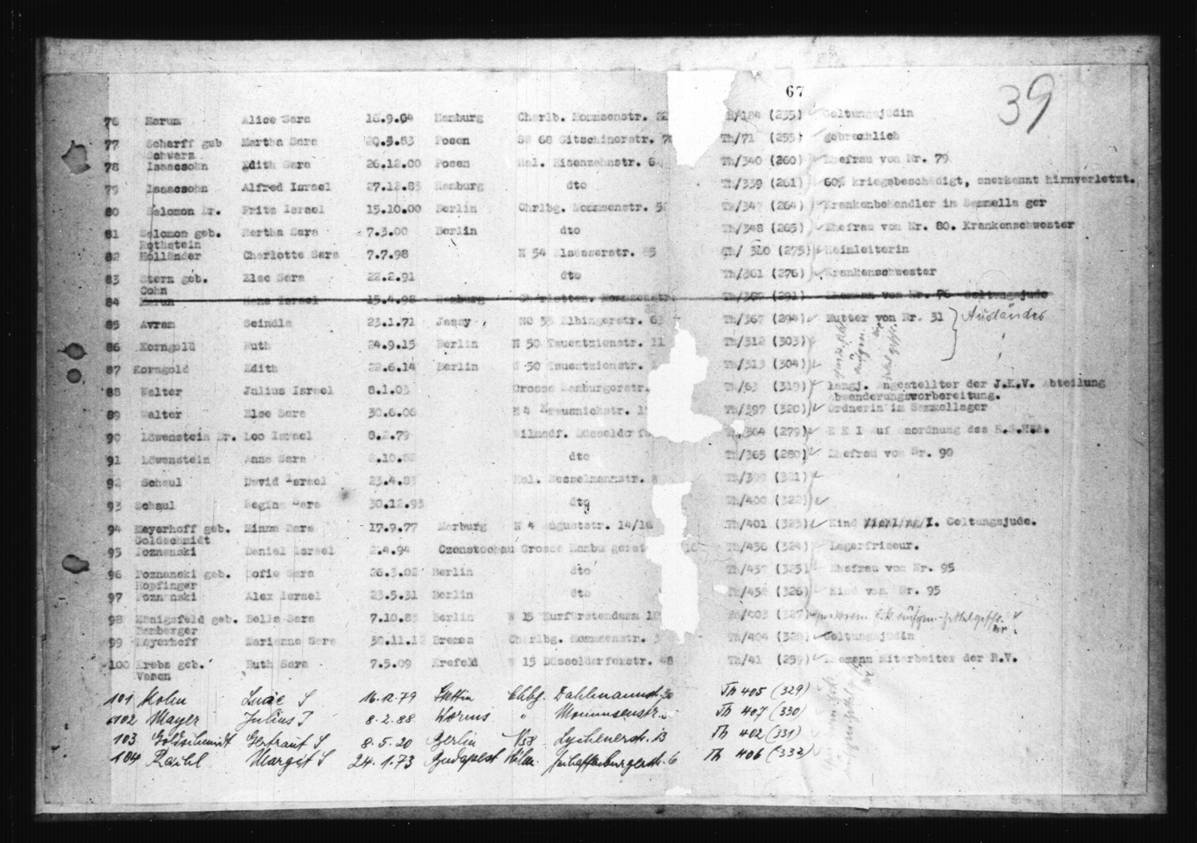 67
39
76 Marum Alice Sara 16.9.04 Hamburg Charlb. Mommsenstr. 22 (235) Geltungsjüdin
77 Scharff geb. Martha Sara 20.9.83 Posen SW 68 Gitschinerstr. 70 Th/71 (255) gebrechlich
Schwarz
78 Isaacsohn Edith Sara 26.12.00 Posen Hal. Eisenzahnstr. 64 Th/340 (260) Ehefrau von Nr. 79
79 Isaacsohn Alfred Israel 27.12.85 Hamburg dto Th/339 (261) 60% kriegsbeschädigt, anerkannt hirnverletzt.
80 Salomon Dr. Fritz Israel 15.10.00 Berlin Chrlbg. Mommsenstr. Th/347 (264) Krankenbehandler im Sammella ger
81 Salomon geb. Hertha Sara 7.3.00 Berlin dto Th/348 (265) Ehefrau von Nr. 80. Krankenschwester
Rothstein
82 Holländer Charlotte Sara 7.7.98 N 54 Elsasserstr. 85 Th/ 310 (275) Heimleiterin
83 Stern geb. Else Sara 22.2.91 dto Th/361 (276) Krankenschwester
Cohn
84 Marum Hans Israel 15.4.98 Hamburg Charlotten. Mommsenstr. Th/369 (291) Ehemann von Nr. 76 Geltungsjude
85 Avram Seindla 23.1.71 Jassy NO 55 Elbingerstr. 63 Th/367 (294) Mutter von Nr. 31 Ausländer
86 Korngold Ruth 24.9.15 Berlin N 50 Tauentzienstr. 11 Th/312 (303)
87 Korngold Edith 22.6.14 Berlin W 50 Tauentzienstr. Th/313 (304)
88 Walter Julius Israel 8.1.03 Grosse Hamburgerstr. Th/63 (319) langj. Angestellter der J.K.V. Abteilung
Abwanderungsvorbereitung.
89 Walter Else Sara 30.6.06 N 4 Th/397 (320) Ordnerin im Sammellager
90 Löwenstein Dr. Leo Israel 8.2.79 Wilmdf. Düsseldorf Th/364 (279) E K I auf Anordnung des R.S.HSA.
91 Löwenstein Anna Sara dto Th/365 (280) Ehefrau von Nr. 90
92 Schaul David Israel 23.4.83 Hal. Nesselmannstr. 8 Th/399 (321)
93 Schaul Regina Sara 30.12.93 dto Th/400 (322)
94 Meyerhoff geb. Minna Sara 17.9.77 Marburg N 4 Auguststr. 14/16 Th/401 (323) Kind I. Geltungsjude.
Goldschmidt
95 Poznanski Daniel Israel 2.4.94 Czenstochau Grosse Hambu gerst Th/436 (324) Lagerfriseur.
96 Poznanski geb. Sofie Sara 26.3.02 Berlin dto Th/457 (325) Ehefrau von Nr. 95
Hopfinger
97 Poznanski Alex Israel 23.5.31 Berlin dto Th/458 (326) Kind von Nr. 95
98 Königsfeld geb. Bella Sara 7.10.85 Berlin W 15 Kurfürstendamm Th/403 (327)
Bamberger
99 Meyerhoff Marianne Sara 30.11.12 Bremen Charlbg. Mommsenstr. Th/404 (328) Geltungsjüdin
100 Krebs geb. Ruth Sara 7.5.09 Krefeld W 15 Düsseldorferstr. 48 Th/41 (259) Ehemann Mitarbeiter der R.V.
Vasen
101 Kohn Lucie S 16.12.79 Stettin Chbg. Dahlmannstr. Th 405 (329)
102 Mayer Julius I 8.2.88 Worms " Mommsenstr. Th 407 (330)
103 Goldschmidt Gertraut S 8.5.20 Berlin N58 Lychenerstr. 13 Th 402 (331)
104 Reichl Margit S 24.1.73 Budapest Aschaffenburgerstr. 6 Th 406 (332)